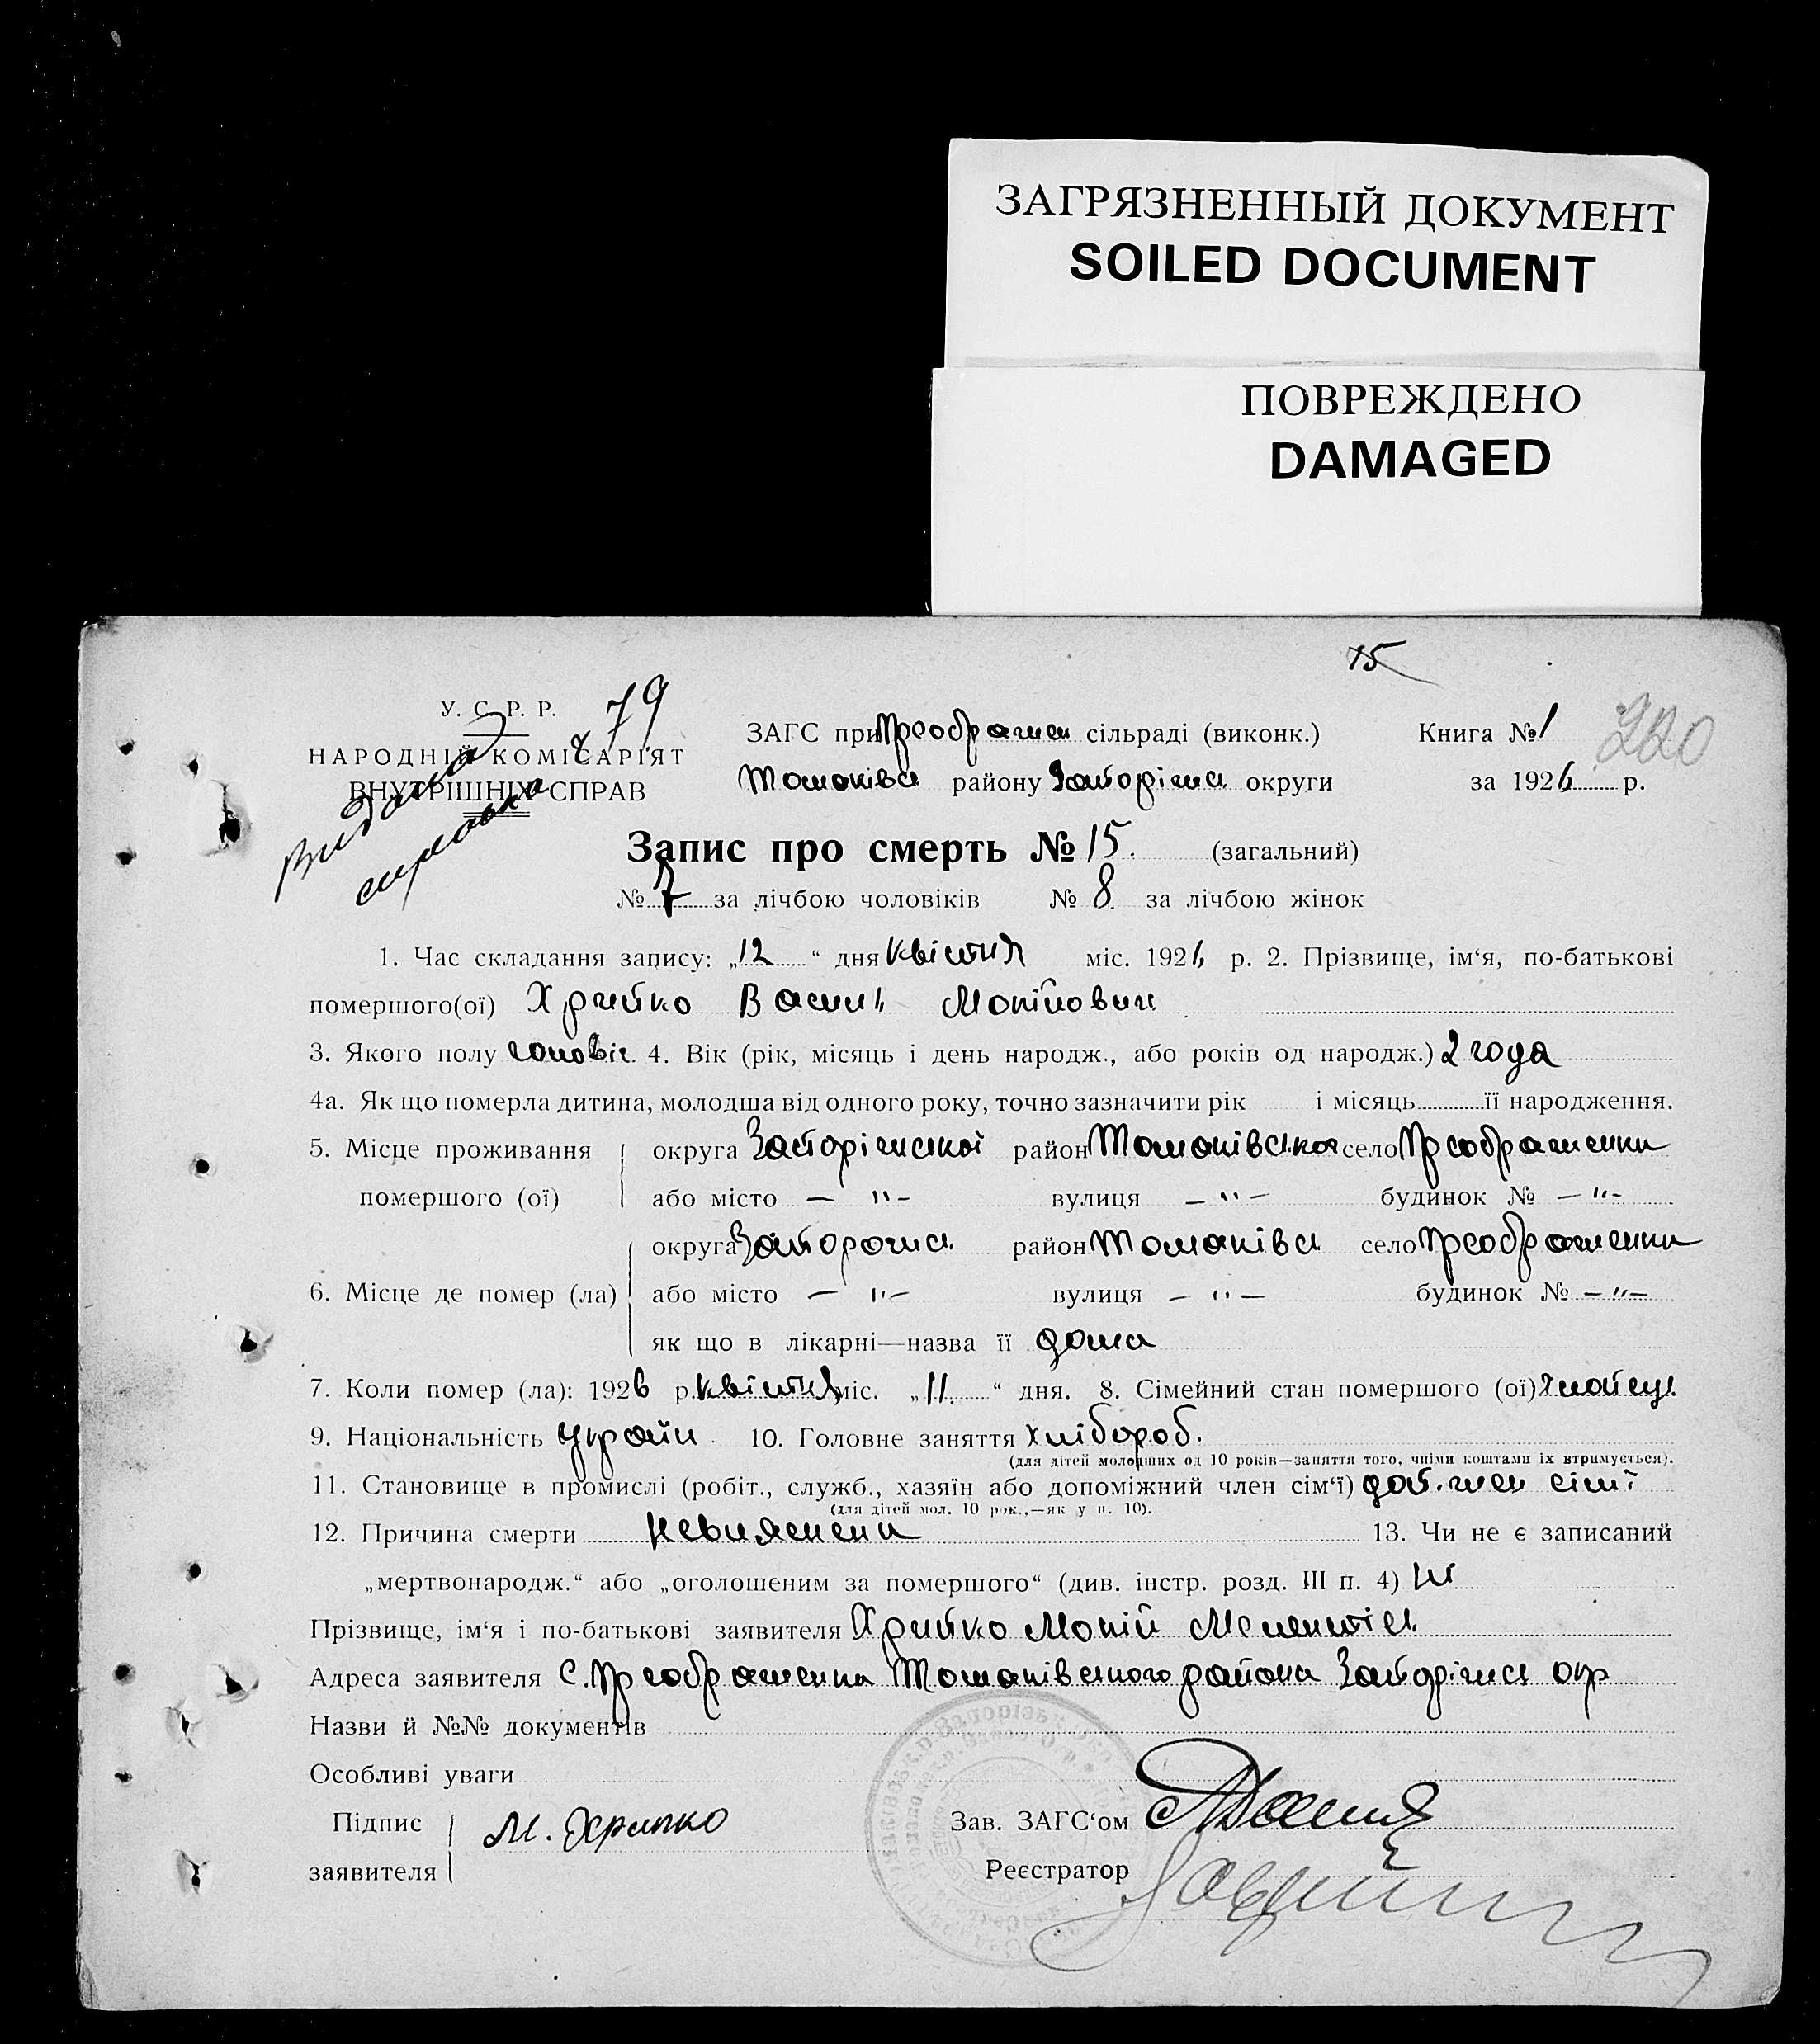 ЗАГРЯЗНЕННЫЙ ДОКУМЕНТ
SOILED DOCUMENT
ПОВРЕЖДЕНО
DAMAGED
15
У. С. Р. Р. 79
НАРОДНІЙ КОМІСАРІЯТ
ВНУТРІШНІХ СПРАВ
Видана
справка
ЗАГС при Преображен сільраді (виконк.) Книга № 1 220
Томаківсь району Запоріжс округи за 1926 р.
Запис про смерть № 15. (загальний)
№ 7 за лічбою чоловіків № 8 за лічбою жінок
1. Час складання запису: „12“ дня квітня міс. 1926 р. 2. Прізвище, ім‘я, по-батькові
помершого(ої) Хрипко Василь Мокійович
3. Якого полу чоловіч. 4. Вік (рік, місяць і день народж., або років од народж.) 2 года
4а. Як що померла дитина, молодша від одного року, точно зазначити рік і місяць її народження.
5. Місце проживання округа Запоріжської район Томаківськоа село Преображенки
помершого (ої) або місто — " - вулиця — " — будинок № — " -
округа Запорожсь район Томаківсь село Преображенки
6. Місце де помер (ла) або місто — " — вулиця — " — будинок № — " —
як що в лікарні—назва її дома
7. Коли помер (ла): 1926 р. квітня міс. „11“ дня. 8. Сімейний стан помершого (ої)
9. Національність україн 10. Головне заняття хлібороб.
(для дітей молодших од 10 років—заняття того, чиїми коштами їх втримується).
11. Становище в промислі (робіт., служб., хазяїн або допоміжний член сім‘ї) доп. член сімї
(для дітей мол. 10 рок.,—як у п. 10).
12. Причина смерти невияснена 13. Чи не є записаний
„мертвонародж.“ або „оголошеним за помершого“ (див. інстр. розд. III п. 4) ні
Прізвище, ім‘я і по-батькові заявителя Хрипко Мокій
Адреса заявителя С. Преображенка Томаківського района Запоріжсь окр
Назви й №№ документів
Особливі уваги
Підпис М. Хрипко Зав. ЗАГС‘ом
заявителя Реєстратор